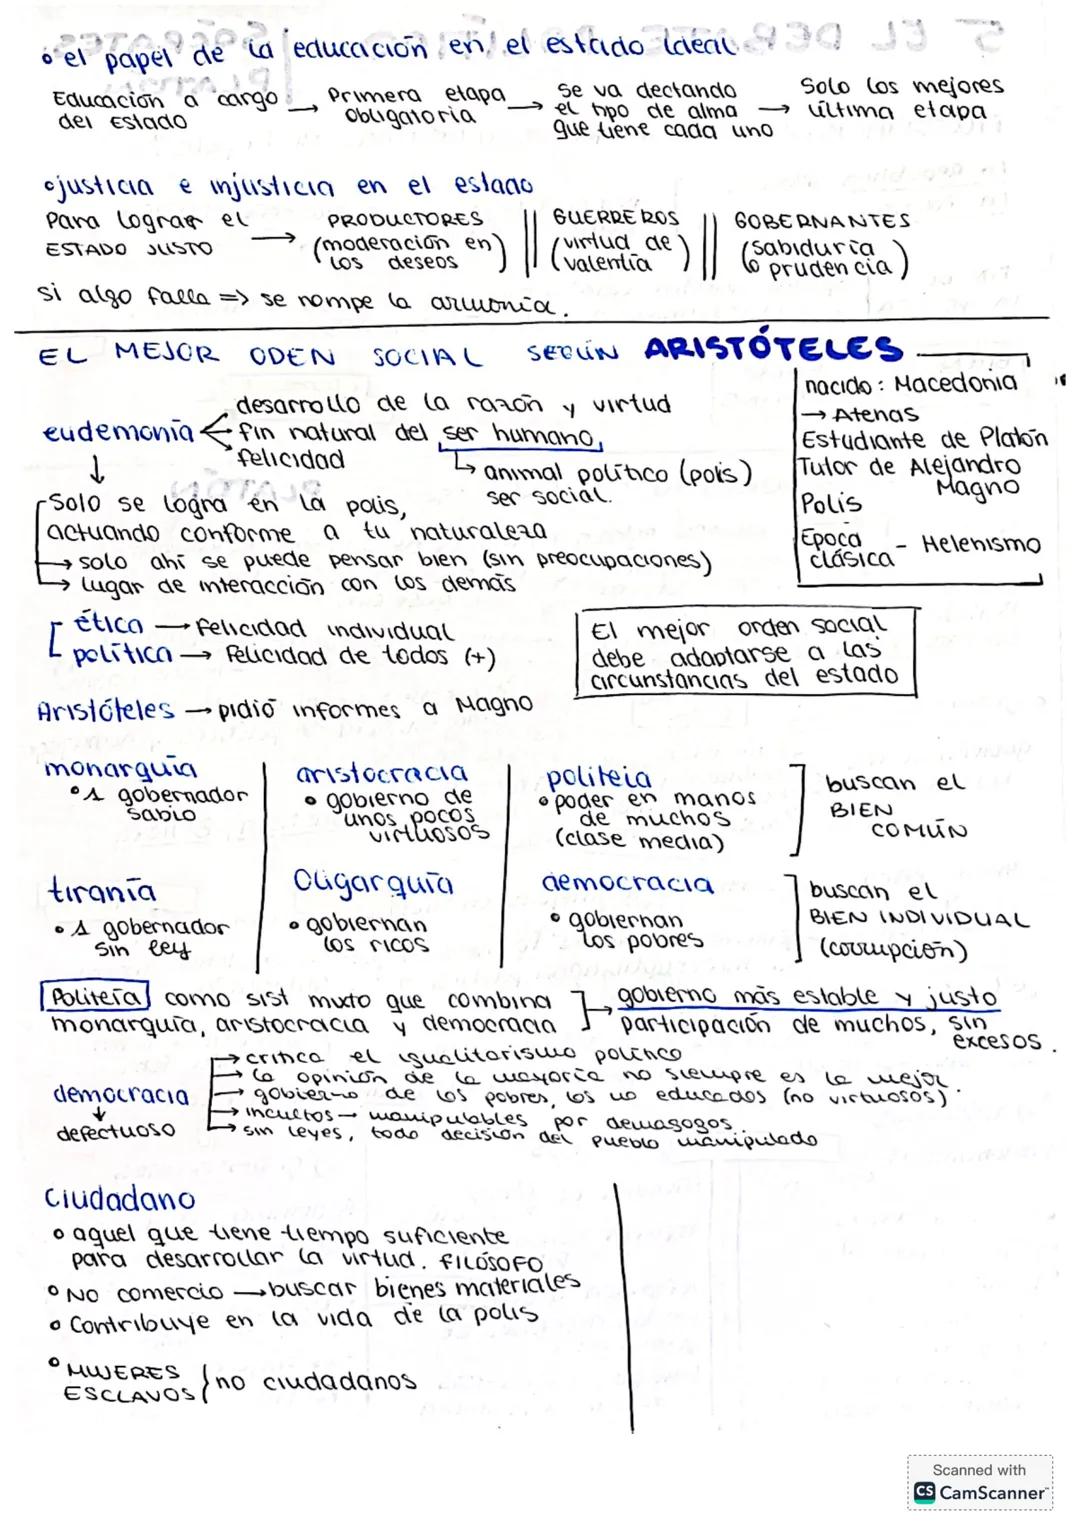 • el papel de la educación en el estado ideal
Educación a cargo del Estado → Primera etapa obligatoria → se va dectando el tipo de alma que tiene cada uno → Solo los mejores última etapa
• justicia e injusticia en el estado
Para lograr el ESTADO JUSTO → PRODUCTORES (moderación en los deseos) || GUERREROS (virtud de valentía) || GOBERNANTES (sabiduría o prudencia)
si algo falla => se rompe la armonía.
EL MEJOR ODEN SOCIAL SEGÚN ARISTÓTELES
nacido: Macedonia
→ Atenas
Estudiante de Platón
Tutor de Alejandro Magno
Polis
Epoca clásica - Helenismo
eudemonía
desarrollo de la razón y virtud
fin natural del ser humano,
felicidad
↳ animal político (polis)
ser social.
↓
Solo se logra en la polis,
actuando conforme a tu naturaleza
→ solo ahí se puede pensar bien (sin preocupaciones)
→ lugar de interacción con los demás
ética → felicidad individual
política → felicidad de todos (+)
El mejor orden social
debe adaptarse a las
circunstancias del estado
Aristóteles → pidió informes a Magno
monarquía
• 1 gobernador sabio
aristocracia
• gobierno de unos pocos virtuosos
politeia
• poder en manos de muchos (clase media)
] buscan el BIEN COMÚN
tiranía
• 1 gobernador sin ley
Oligarquía
• gobiernan los ricos
democracia
• gobiernan los pobres
] buscan el BIEN INDIVIDUAL (corrupción)
Politeía como sist mixto que combina
monarquía, aristocracia y democracia
] → gobierno más estable y justo
participación de muchos, sin excesos.
democracia
↓
defectuoso
→ critica el igualitarismo político
→ la opinión de la mayoría no siempre es la mejor.
→ gobierno de los pobres, los no educados (no virtuosos)
→ incultos → manipulables por demagogos.
→ sin leyes, todo decisión del pueblo manipulado
Ciudadano
• aquel que tiene tiempo suficiente
para desarrollar la virtud. FILÓSOFO
• NO comercio → buscar bienes materiales
• Contribuye en la vida de la polis
• MUJERES
ESCLAVOS } no ciudadanos
Scanned with
CS CamScanner